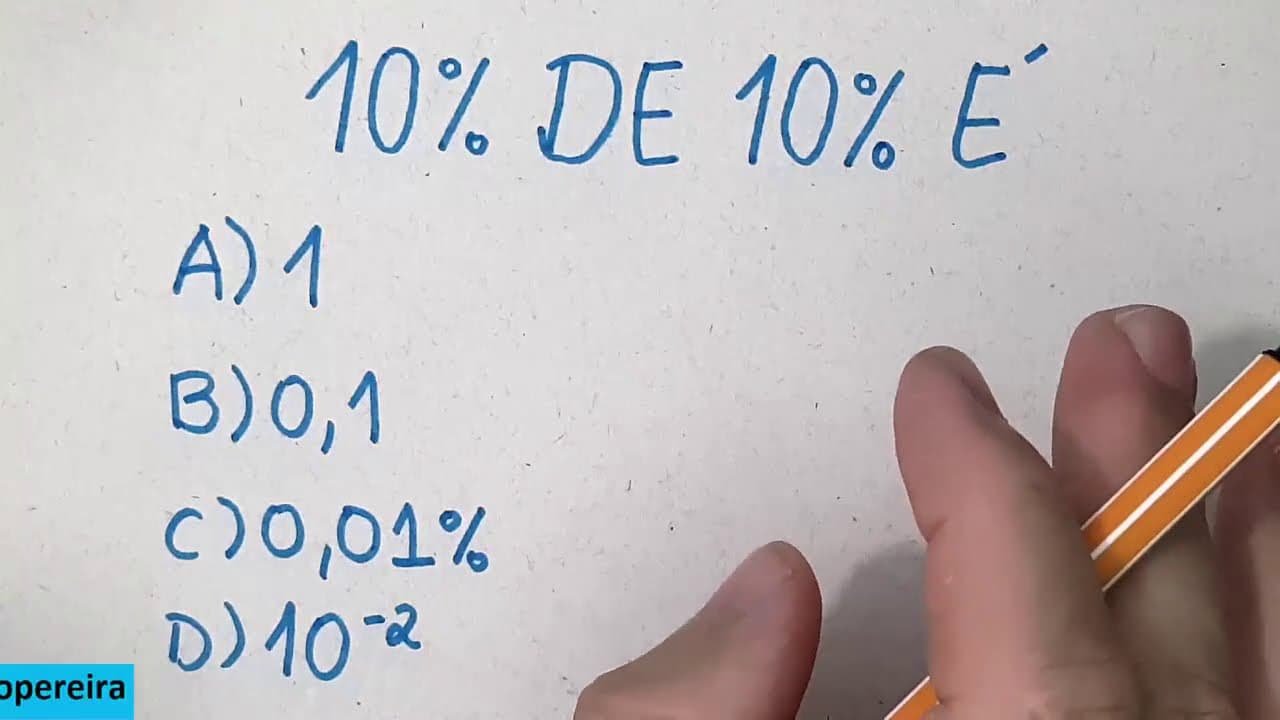 10% DE 10% É
A) 1
B) 0,1
C) 0,01%
D) 10⁻²
opereira